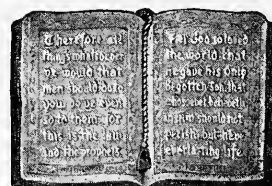 Therefore all
things whatsoever
ye would that
men should do to
you do ye even
so to them: for
this is the law
and the prophets
For God so loved
the world that
he gave his only
begotten Son, that
whosoever believeth
in him should not
perish but have
everlasting life